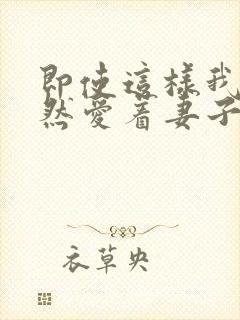 即使這樣我
然愛着妻子
衣草央